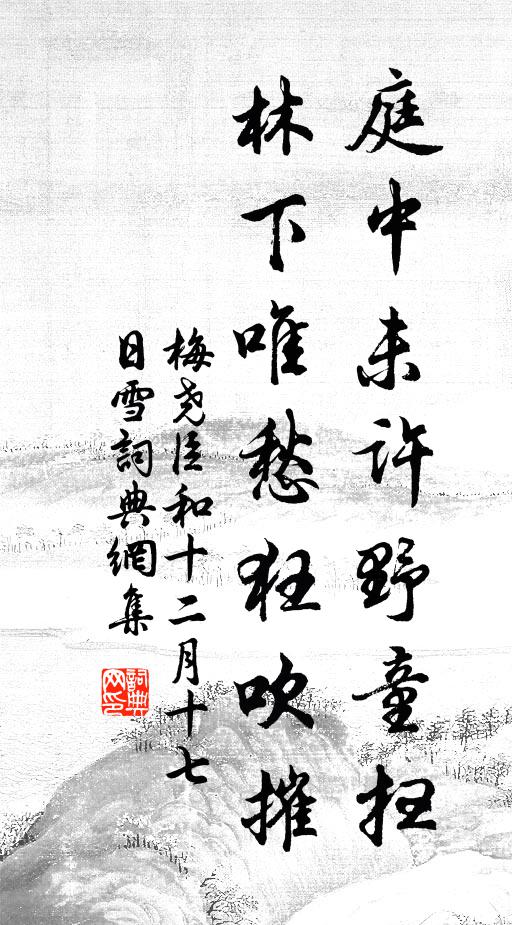 庭中未許野童掃
林下唯愁狂吹摧
梅堯臣和十二月十七
日雪詞典網集
詞典网印